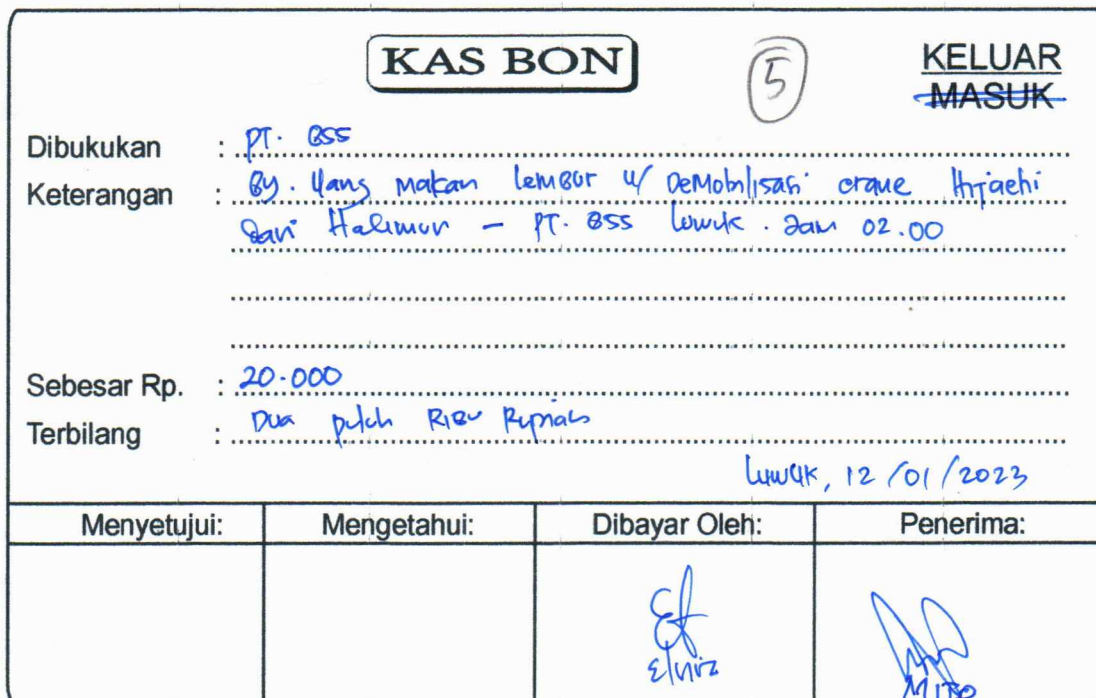 KAS BON
5
KELUAR
MASUK
Dibukukan : PT. BSS
Keterangan : By. Uang makan lembur u/ Demobilisasi crane Hitachi
dari Halimun - PT. BSS luwuk. Jam 02.00
Sebesar Rp. : 20.000
Terbilang : Dua puluh Ribu Rupiah
luwuk, 12/01/2023
Menyetujui: Mengetahui: Dibayar Oleh: Penerima: